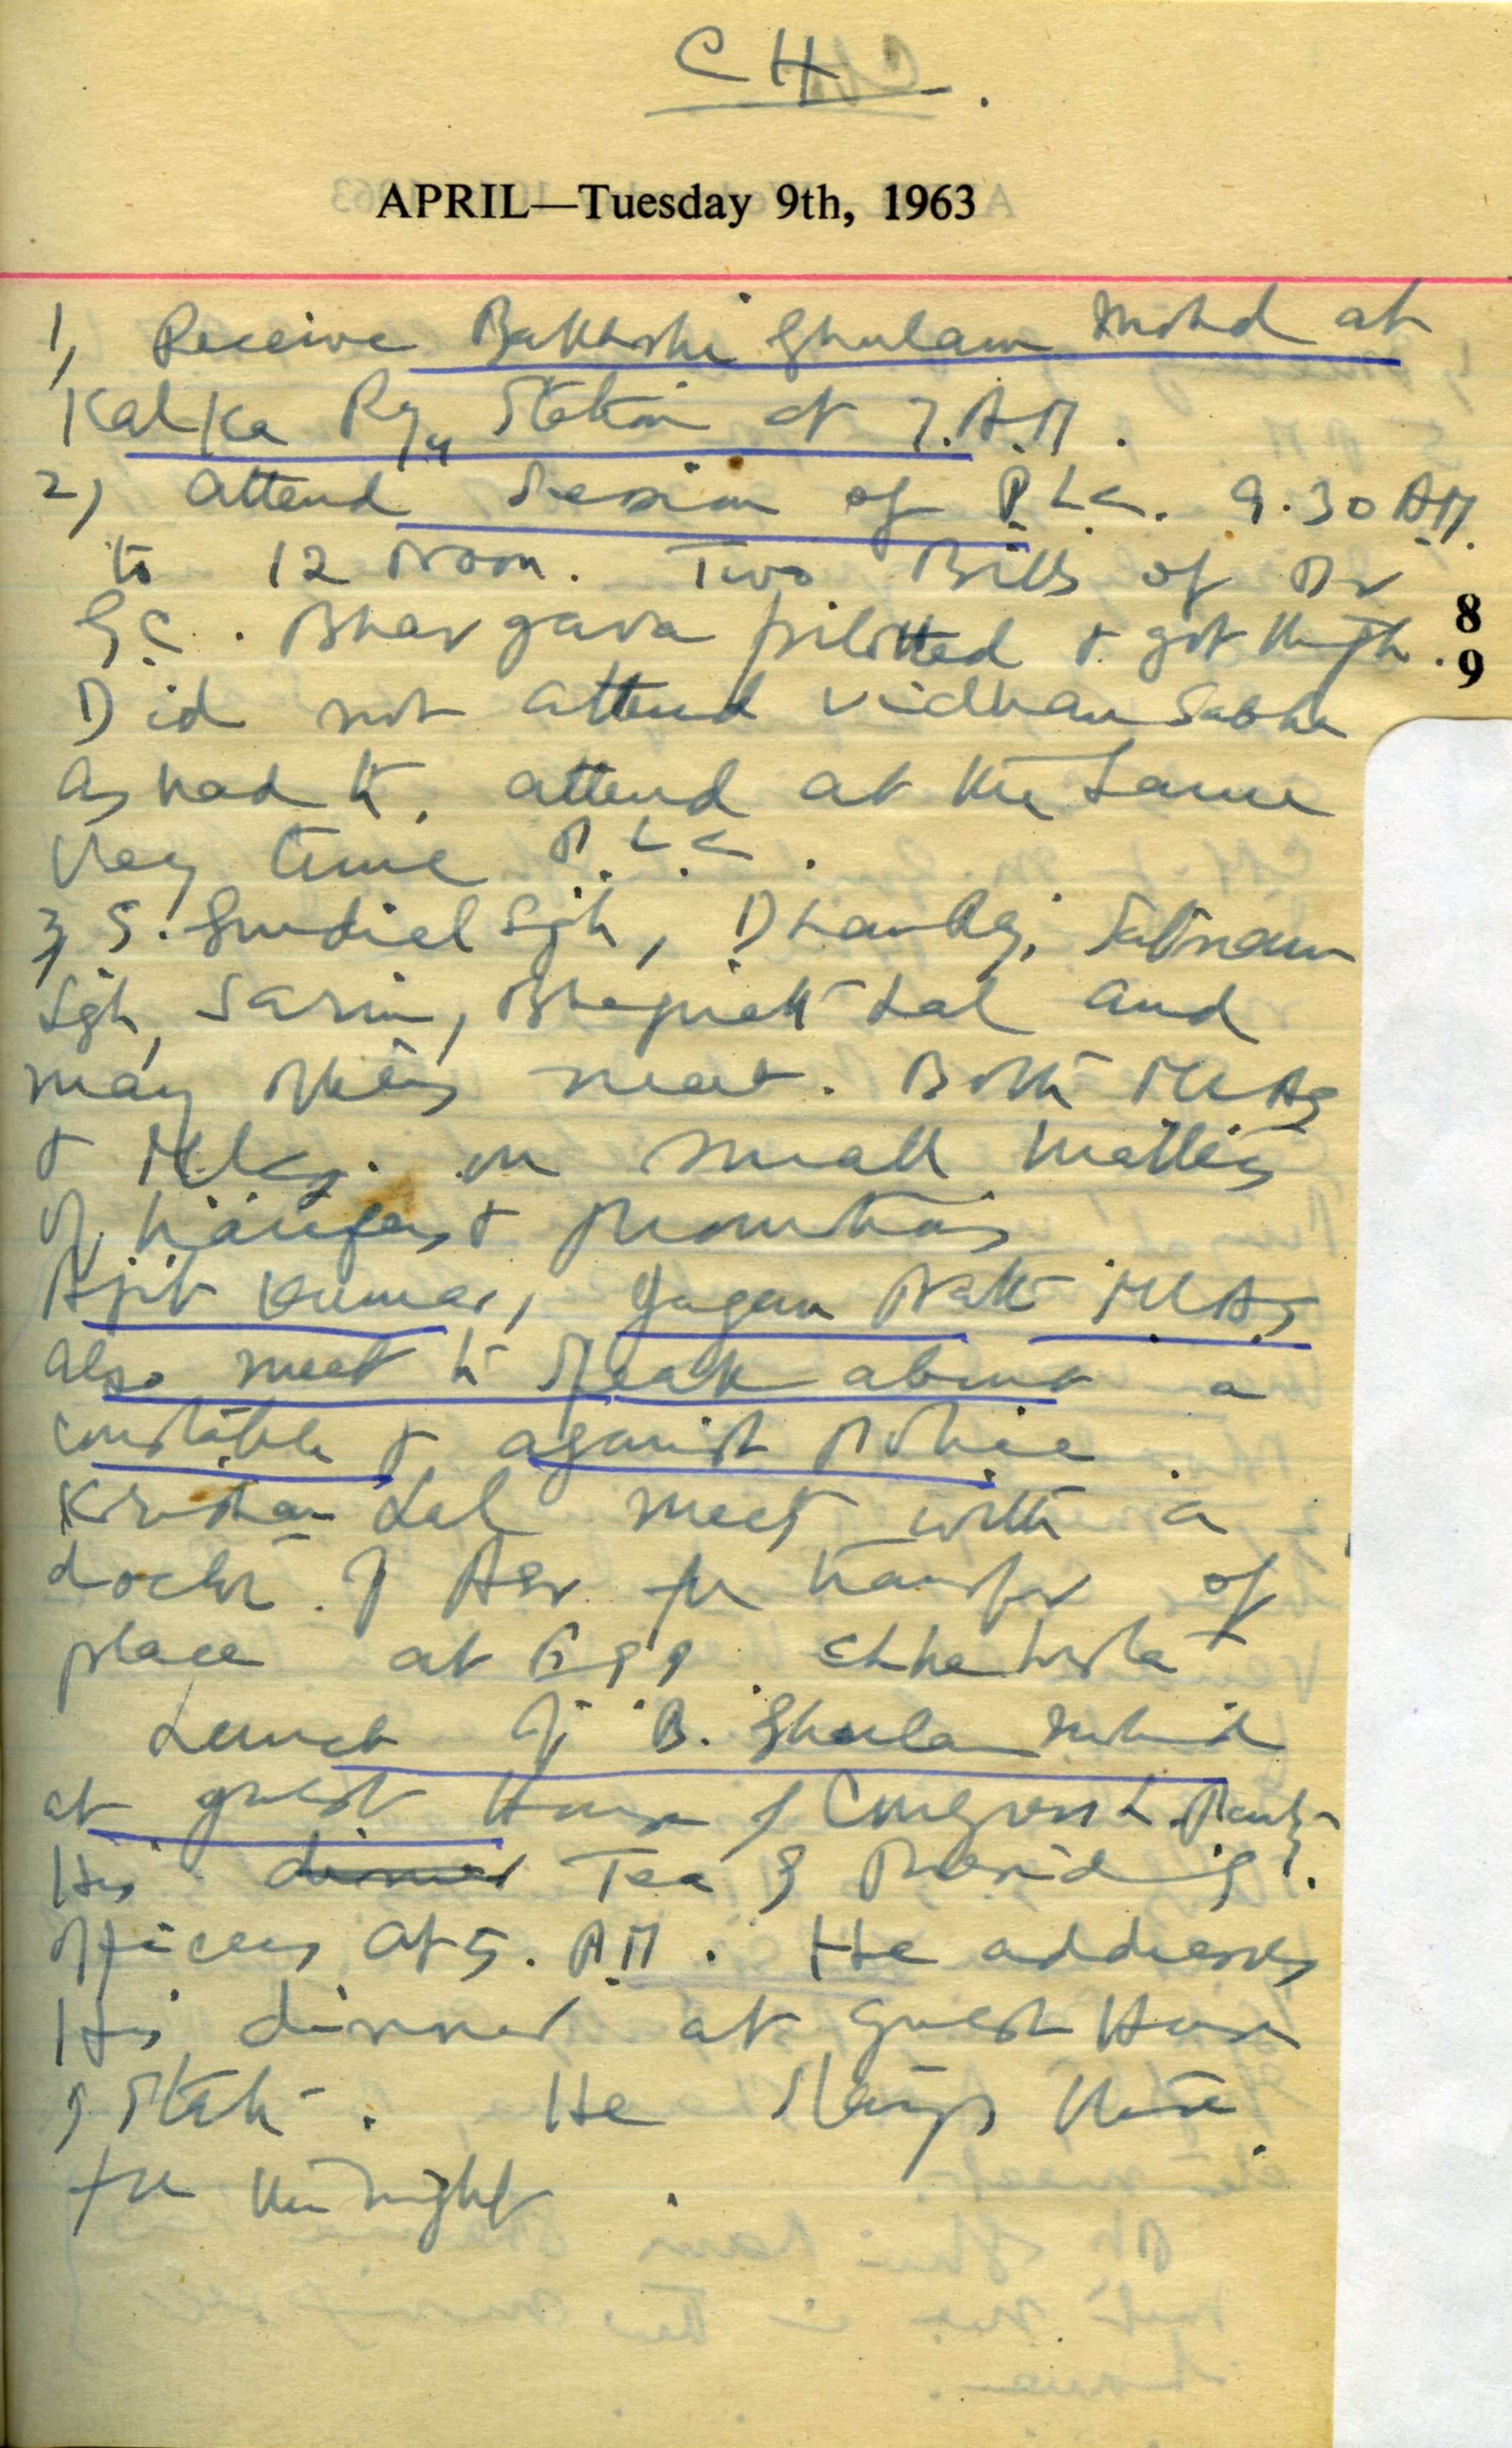 CH.
APRIL—Tuesday 9th, 1963
1) Receive Bakhshi Ghulam Mohd at
Kalka Rly Station at 7. A.M.
2) attend Session of P.L.C. 9.30 AM.
to 12 Noon. Two Bills of Dr
G.C. Bhargava pilotted & got thrgh.
Did not attend Vidhan Sabha
as had to attend at the same
very time P.L.C.
3) S. Gurdial Sgh, Satnam
Sgh, Sarin, Lal and
many others meet. Both MLAs
& MLCs. on small matters
of transfers & promotions
Ajit Kumar, Jagan Nath MLAs
also meet to speak about a
constable & against Police
Krishan Lal meets with a
doctor of Asr for transfer of
place at Chheharta
Lunch of B. Ghulam Mohd
at guest House of Congress L. Party
His dinner Tea of Presiding
officers at 5. P.M. He addresses
His dinner at Guest House
of State. He stays there
for the night.
8
9